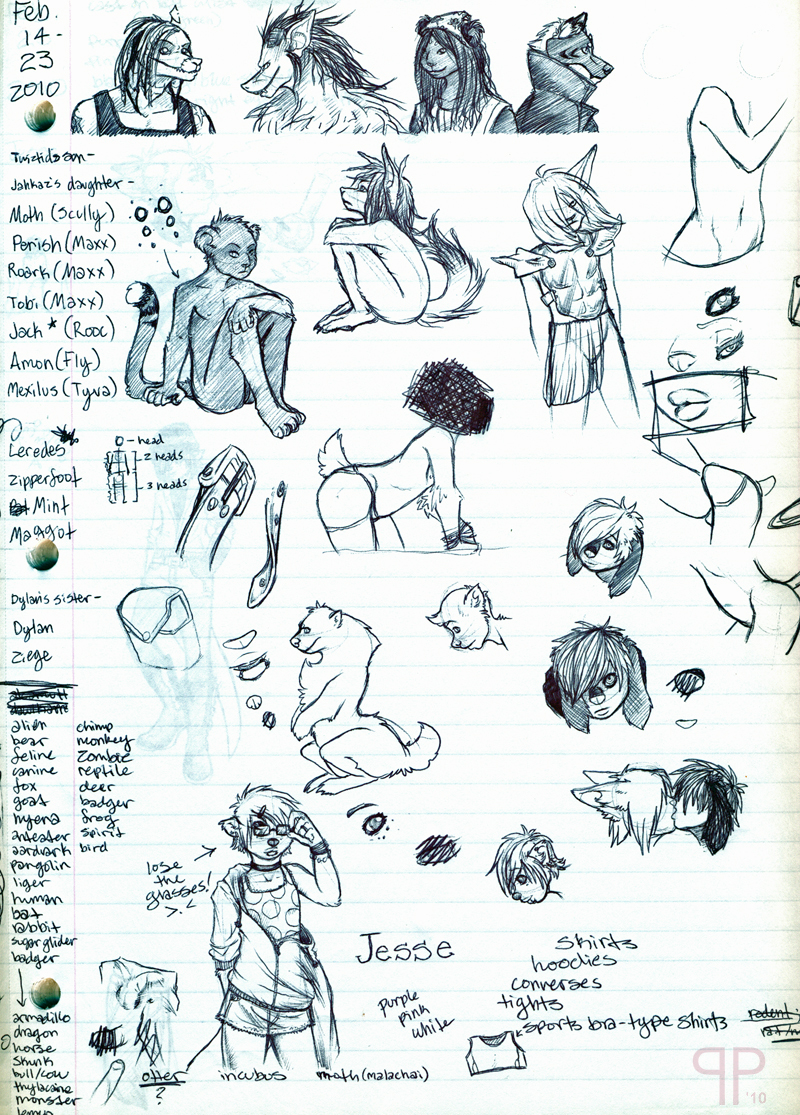 Feb.
14-
23
2010
Jahkaz's daughter-
Moth (Scully)
Parish (Maxx)
Roark (Maxx)
Tobi (Maxx)
Jack * (Rooc)
Amon (Fly)
Mexilus (Tyva)
Leredes
zipperfoot
Mint
Maggot
head
2 heads
3 heads
Dylan's sister-
Dylan
Ziege
alien
bear
feline
canine
fox
goat
hyena
anteater
aardvark
pangolin
liger
human
bat
rabbit
sugar glider
badger
chimp
monkey
zombie
reptile
deer
badger
frog
spirit
bird
armadillo
dragon
horse
skunk
bull/cow
thylacine
monster
lemur
lose
the
glasses!
>.<
Jesse
purple
pink
white
skirts
hoodies
converses
tights
sports bra-type shirts
rodent
otter
?
incubus
moth (malachai)
PP
'10